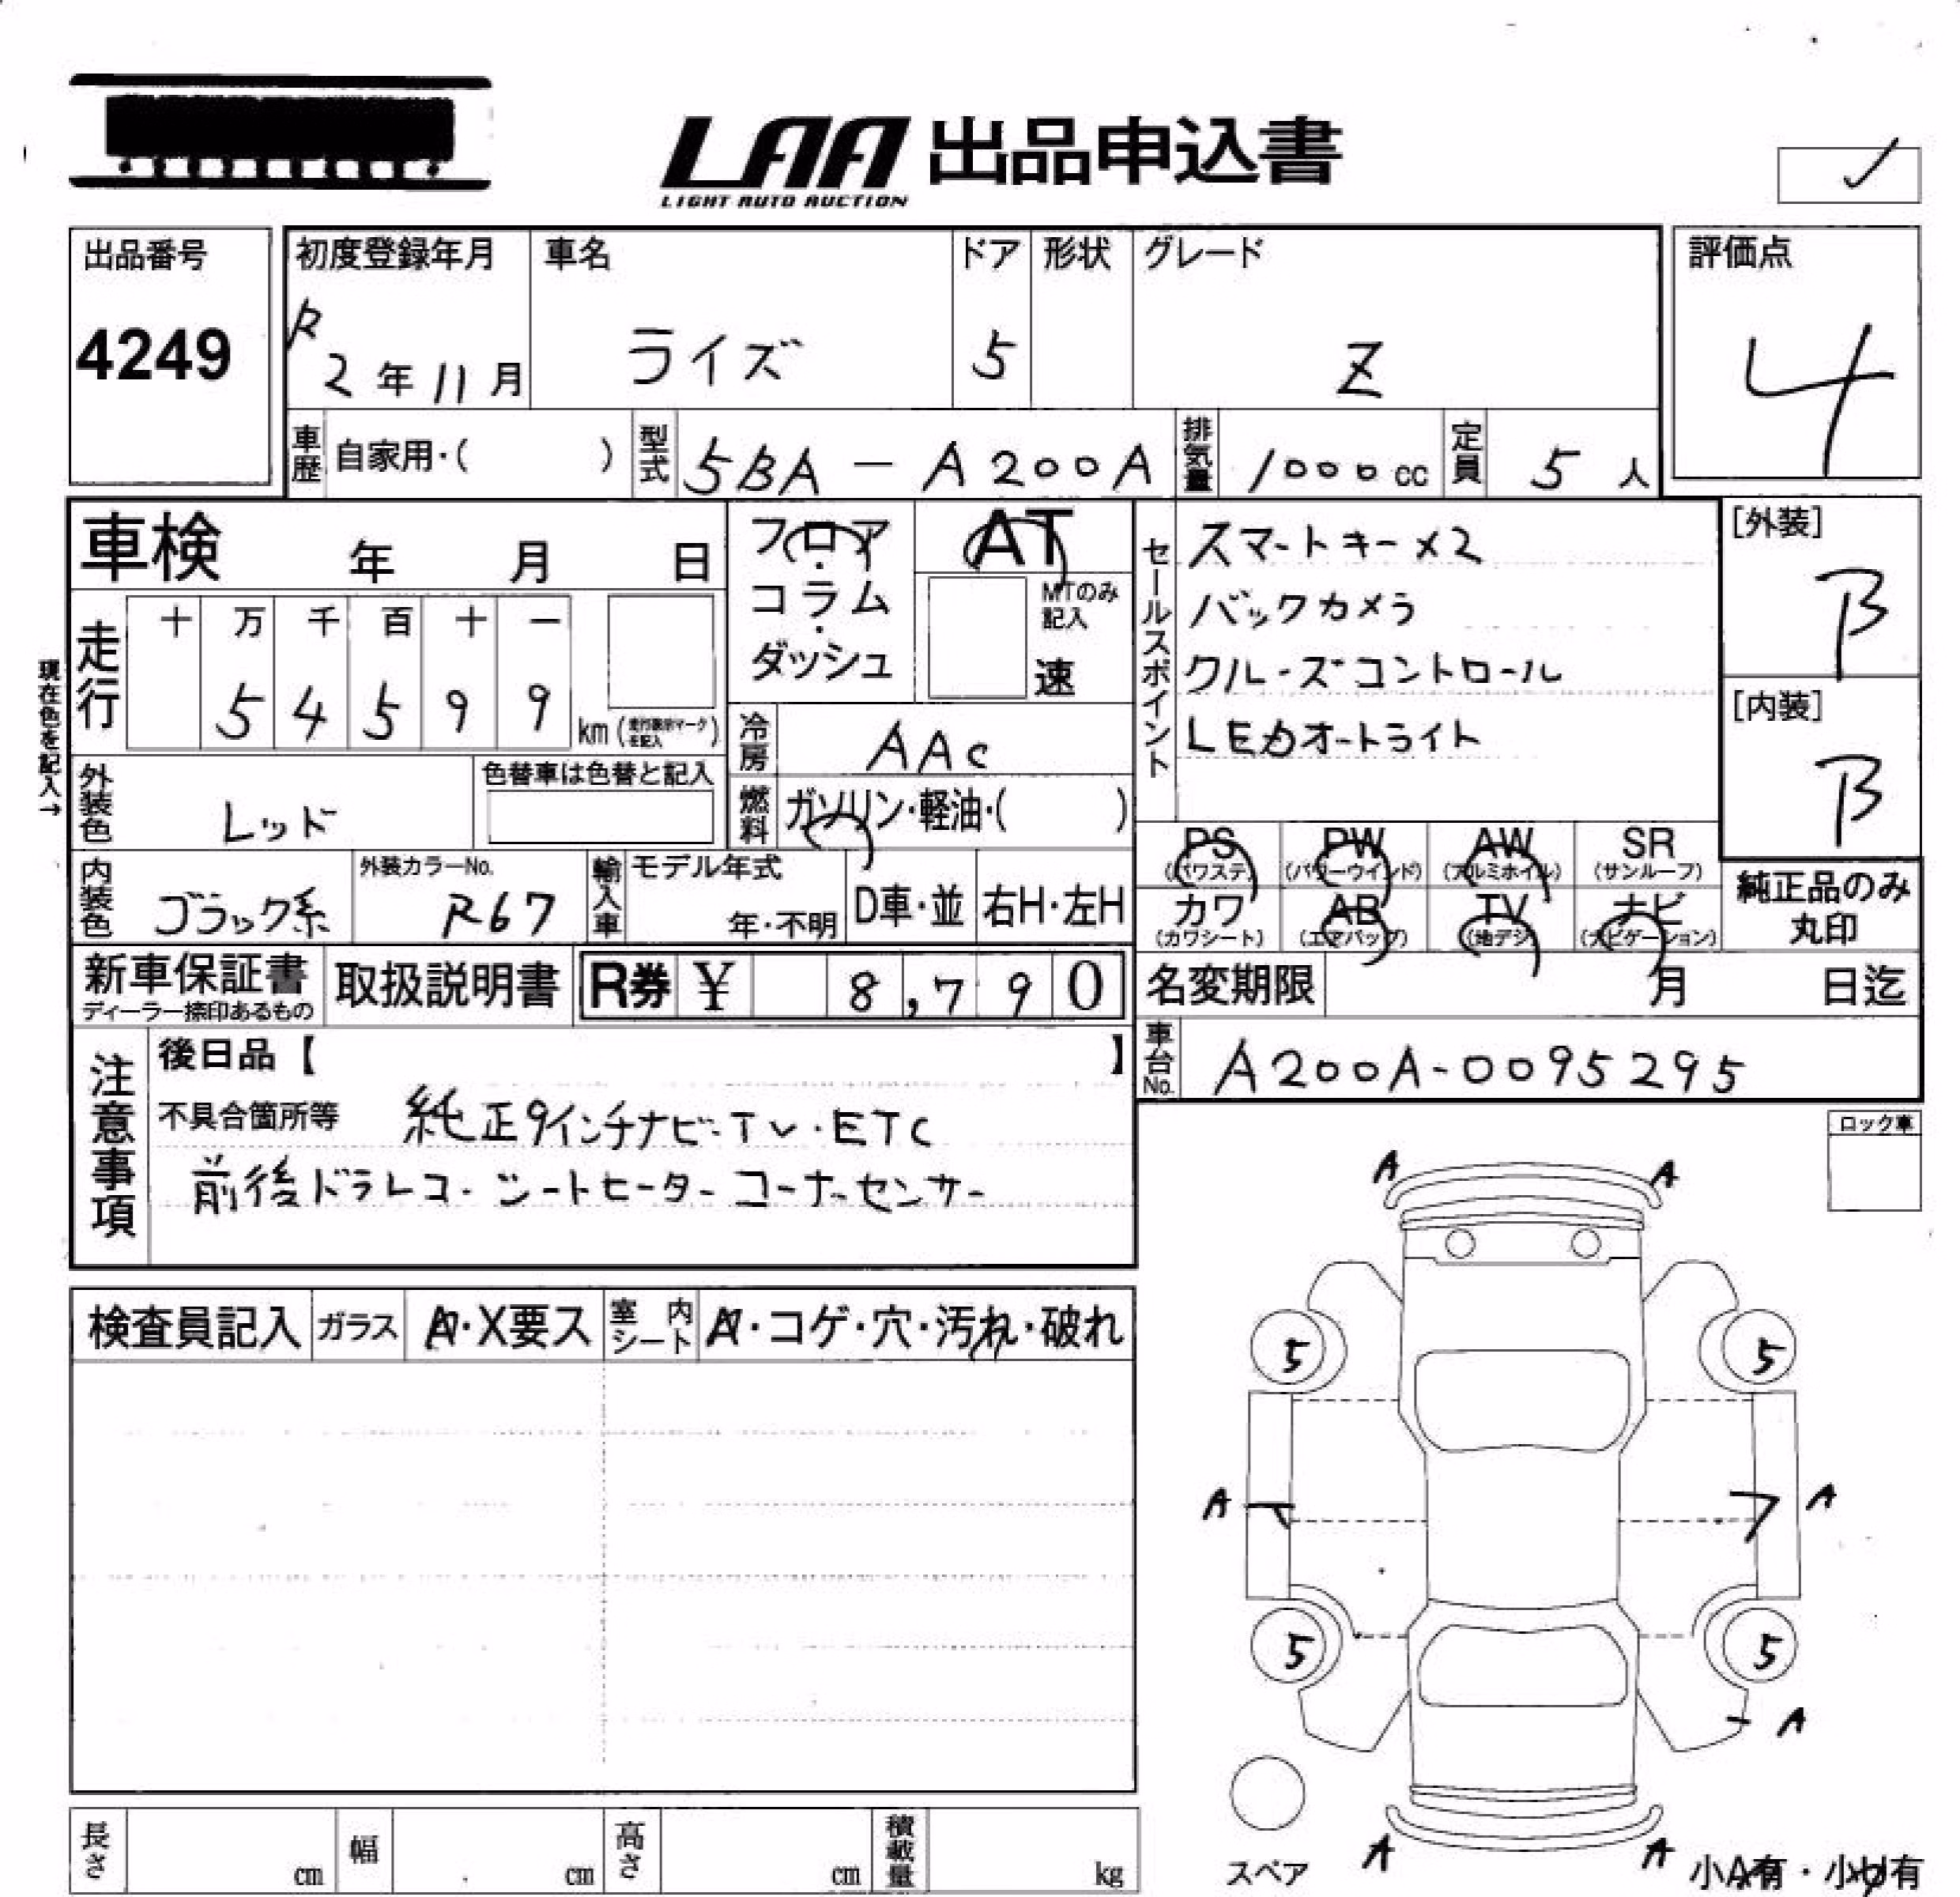 LAA 出品申込書
LIGHT AUTO AUCTION
出品番号
4249
初度登録年月
R
2年11月
車名
ライズ
ドア
5
形状
グレード
Z
評価点
4
車歴 自家用・( )
型式 5BA-A200A
排気量 1000cc
定員 5人
車検 年 月 日
フロア・コラム・ダッシュ
AT
MTのみ記入
速
セールスポイント
スマートキー×2
バックカメラ
クルーズコントロール
LEDオートライト
[外装]
B
[内装]
B
現在色を記入→
走行
十 万 千 百 十 一
5 4 5 9 9
km(走行表示マーク記入)
冷房 AAC
燃料 ガソリン・軽油・( )
外装色 レッド
色替車は色替と記入
内装色 ブラック系
外装カラーNo.
R67
輸入車
モデル年式
年・不明
D車・並
右H・左H
PS
(パワステ)
PW
(パワーウインド)
AW
(アルミホイル)
SR
(サンルーフ)
カワ
(カワシート)
AB
(エアバッグ)
TV
(地デジ)
ナビ
(ナビゲーション)
純正品のみ
丸印
新車保証書
ディーラー捺印あるもの
取扱説明書
R券 ¥ 8,790
名変期限 月 日迄
車台No. A200A-0095295
注意事項
後日品【 】
不具合箇所等 純正9インチナビ・TV・ETC
前後ドラレコ・シートヒーター コーナーセンサー
ロック車
検査員記入
ガラス
A・X要ス
室内シート
A・コゲ・穴・汚れ・破れ
A A
5 5
A A
5 5
A
A A
スペア
小A有・小U有
長さ cm
幅 cm
高さ cm
積載量 kg